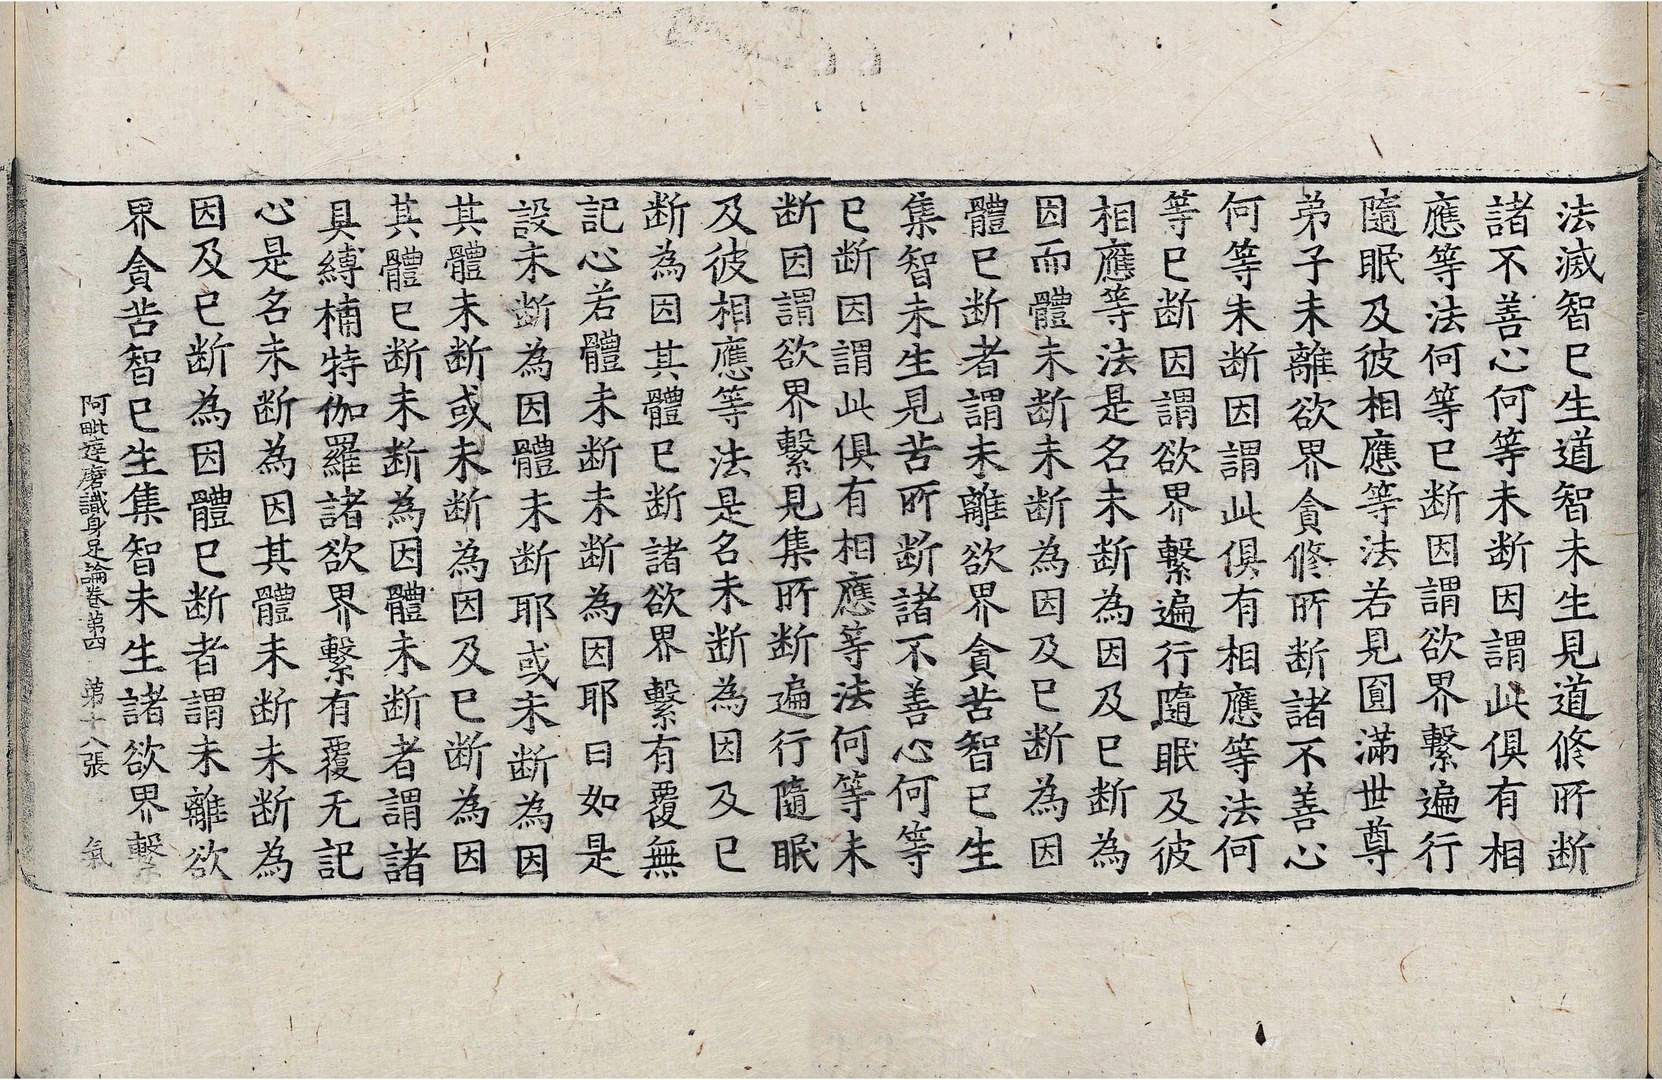 法滅智已生道智未生見道修所断
諸不善心何等未断因謂此俱有相
應等法何等已断因謂欲界繫遍行
隨眠及彼相應等法若見圓滿世尊
弟子未離欲界貪修所断諸不善心
何等未断因謂此俱有相應等法何
等已断因謂欲界繫遍行隨眠及彼
相應等法是名未断為因及已断為
因而體未断未断為因及已断為因
體已断者謂未離欲界貪苦智已生
集智未生見苦所断諸不善心何等
已断因謂此俱有相應等法何等未
断因謂欲界繫見集所断遍行隨眠
及彼相應等法是名未断為因及已
断為因其體已断諸欲界繫有覆無
記心若體未断未断為因耶曰如是
設未断為因體未断耶或未断為因
其體未断或未断為因及已断為因
其體已断未断為因體未断者謂諸
具縛補特伽羅諸欲界繫有覆无記
心是名未断為因其體未断未断為
因及已断為因體已断者謂未離欲
界貪苦智已生集智未生諸欲界繫
阿毗達磨識身足論卷第四　第十八張　氣